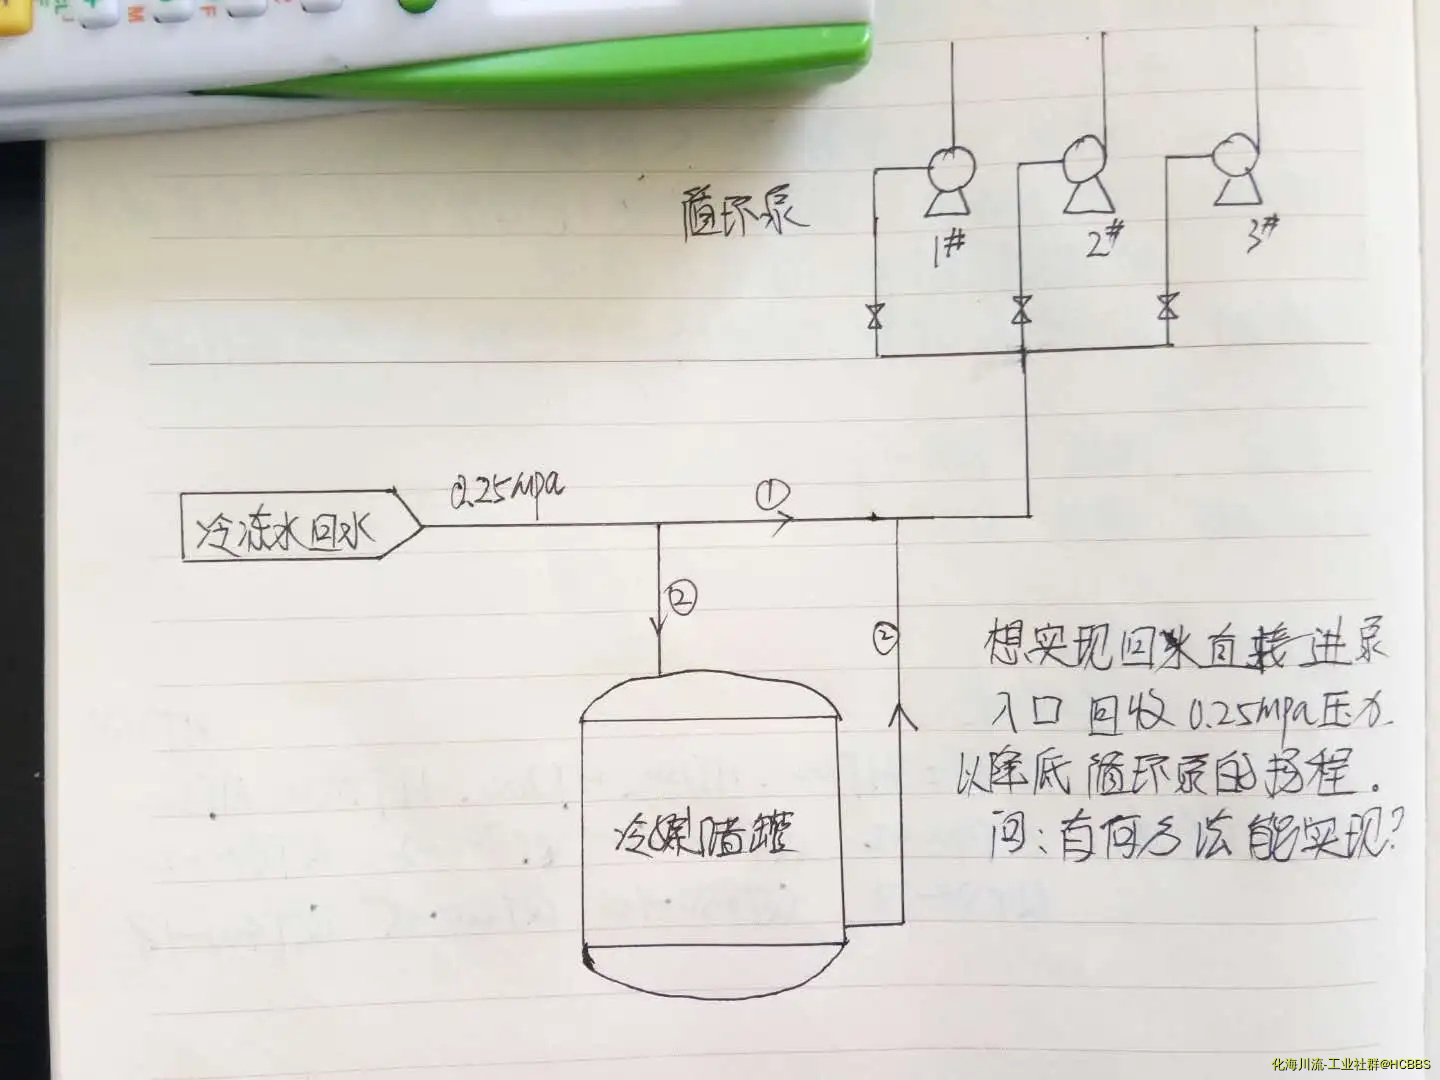 M
F
循环泵
1#
2#
3#
0.25mpa
①
冷冻水回水
②
②
想实现回水直接进泵
入口 回收0.25mpa压力.
以降底循环泵的扬程.
问:有何方法能实现?
冷媒储罐
化海川流-工业社群@HCBBS